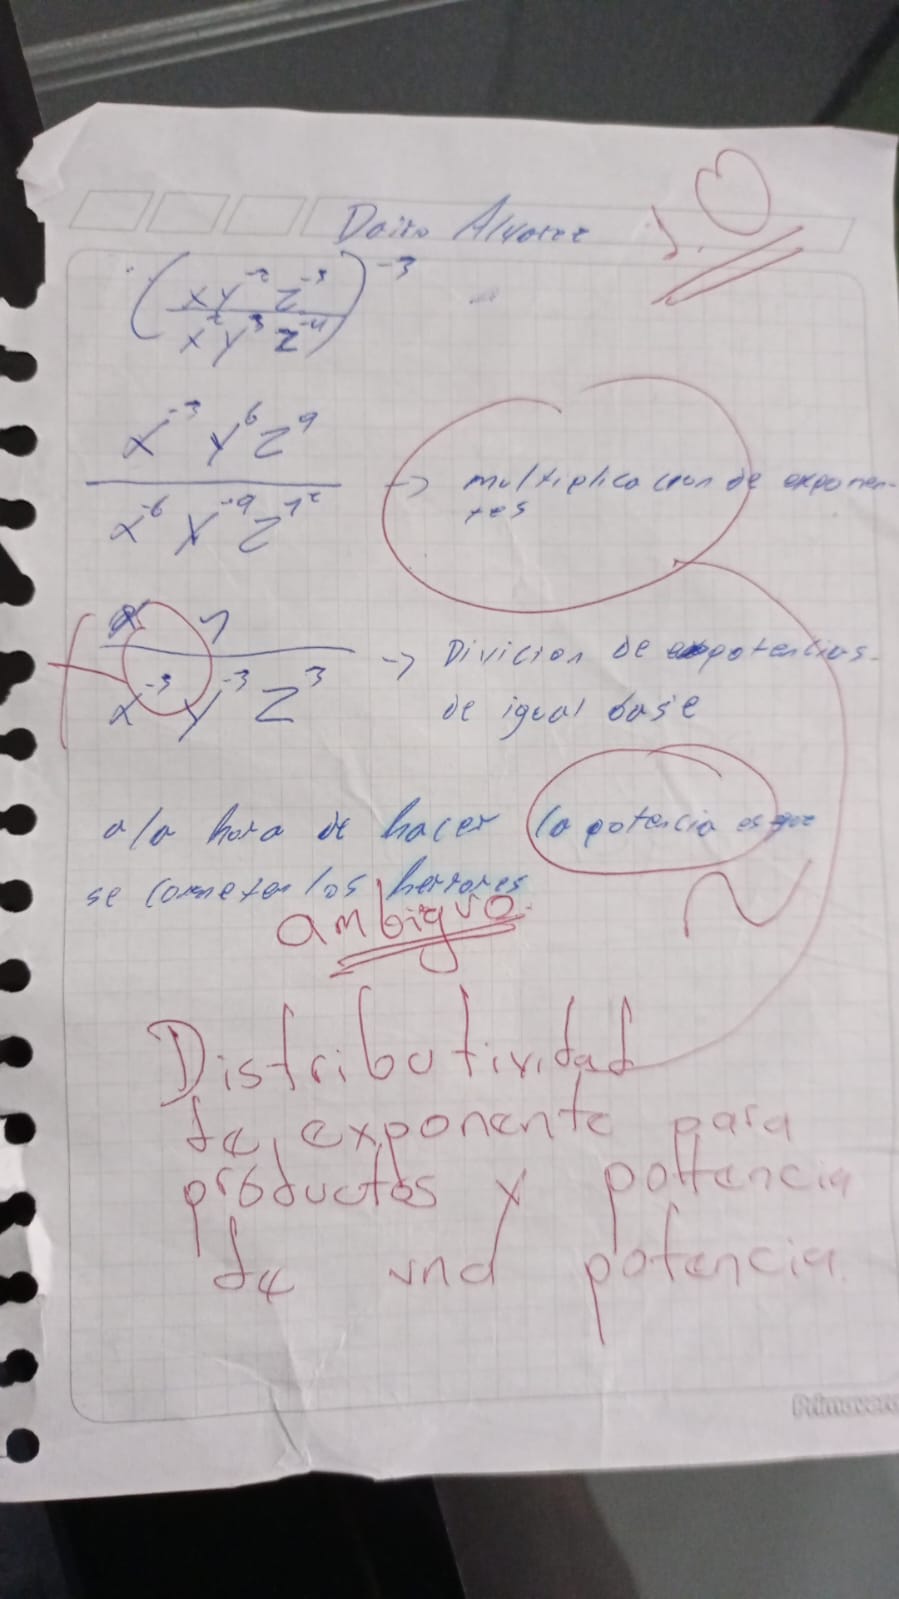 Dairo Alvarez
1.0
(xy^-2 z^-3 / x^2 y^3 z^-4)^-3
x^-3 y^6 z^9 / x^-6 y^-9 z^12 -> multiplicacion de exponen-
tes
1 / x^-3 y^-3 z^3 -> Divicion de potencias
de igual base
a la hora de hacer la potencia es que
se cometen los herrores
ambiguo.
Distributividad
de exponente para
productos y pottencia
de una potencia.
Primavera